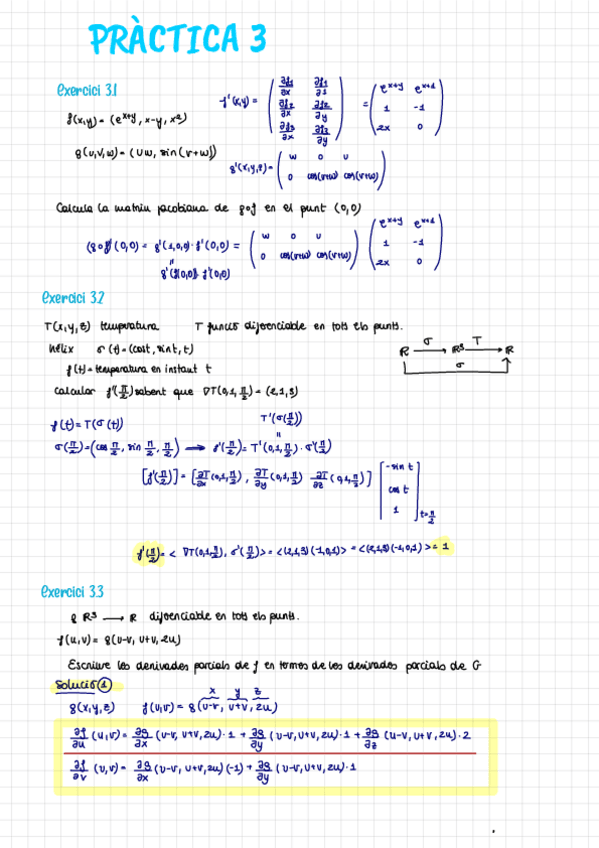 PRÀCTICA 3
Exercici 3.1
f(x,y) = (e^{x+y}, x-y, x²)
f'(x,y) = ( ∂f1/∂x ∂f1/∂1 ; ∂f2/∂x ∂f2/∂y ; ∂f3/∂x ∂f3/∂y ) = ( e^{x+y} e^{x+1} ; 1 -1 ; 2x 0 )
g(u,v,w) = (uw, sin(v+w))
g'(x,y,z) = ( w 0 u ; 0 cos(v+w) cos(v+w) )
Calcula la matriu jacobiana de gof en el punt (0,0)
(gof)'(0,0) = g'(1,0,0)·f'(0,0) = ( w 0 u ; 0 cos(v+w) cos(v+w) ) ( e^{x+y} e^{x+1} ; 1 -1 ; 2x 0 )
=
g'(f(0,0)) f'(0,0)
Exercici 3.2
T(x,y,z) temperatura T funció diferenciable en tots els punts.
Hèlix σ(t) = (cost, sint, t)
R σ→ R³ T→ R
σ
f(t) = temperatura en instant t
Calcular f'(π/2) sabent que ∇T(0,1,π/2) = (2,1,3)
f(t) = T(σ(t))
T'(σ(π/2))
=
σ(π/2) = (cos π/2, sin π/2, π/2) → f'(π/2) = T'(0,1,π/2)·σ'(π/2)
[f'(π/2)] = [∂T/∂x (0,1,π/2), ∂T/∂y (0,1,π/2) ∂T/∂z (0,1,π/2)] [ -sin t ; cos t ; 1 ] t=π/2
f'(π/2) = < ∇T(0,1,π/2), σ'(π/2) > = <(2,1,3)(-1,0,1)> = <(2,1,3)(-1,0,1)> = 1
Exercici 3.3
g R³ → R diferenciable en tots els punts.
f(u,v) = g(u-v, u+v, 2u)
Escriure les derivades parcials de f en termes de les derivades parcials de G
Solució 1
x y z
g(x,y,z) f(u,v) = g(u-v, u+v, 2u)
∂f/∂u (u,v) = ∂g/∂x (u-v, u+v, 2u)·1 + ∂g/∂y (u-v, u+v, 2u)·1 + ∂g/∂z (u-v, u+v, 2u)·2
∂f/∂v (u,v) = ∂g/∂x (u-v, u+v, 2u)(-1) + ∂g/∂y (u-v, u+v, 2u)·1